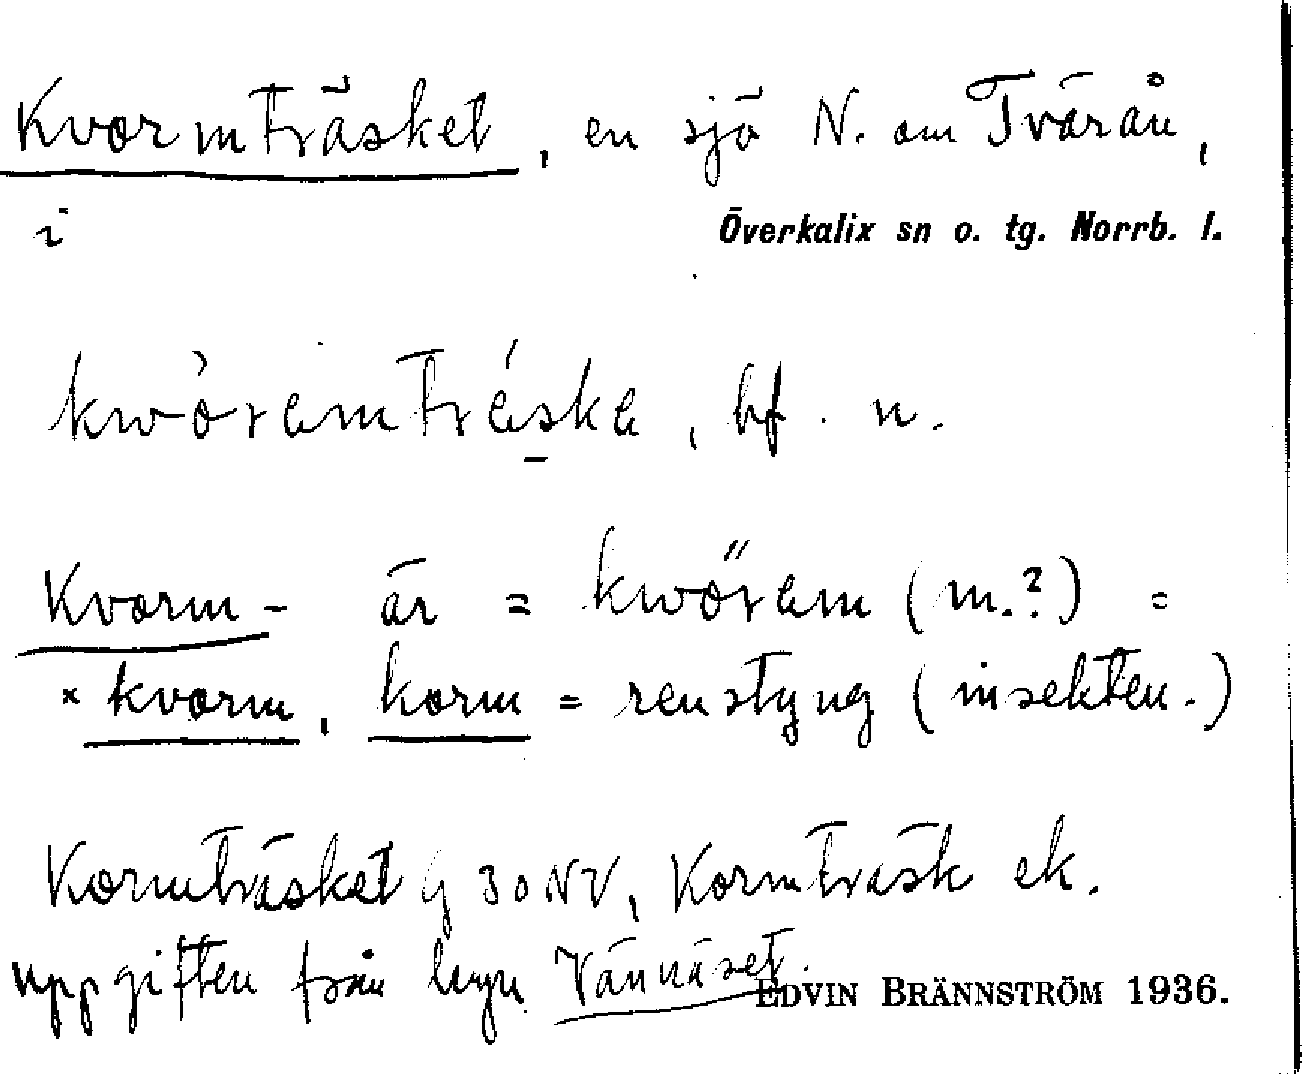 Kvormträsket, en sjö N. om Tvärån,
i Överkalix sn o. tg. Norrb. l.
kwòramtráska, bf. n.
Kvorm- är = kwőram (m.?) =
× kvorm, korm = renstyng (insekten.)
Kormträsket G 30 NV, Kormträsk ek.
uppgiften från byn Vännäset.
EDVIN BRÄNNSTRÖM 1936.